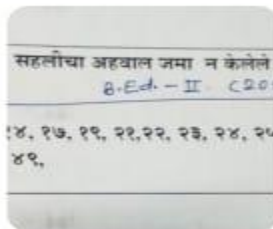 सहलीचा अहवाल जमा न केलेले
B.Ed. - II. (20
१४, १७, १९, २१,२२, २३, २४, २५
४९,